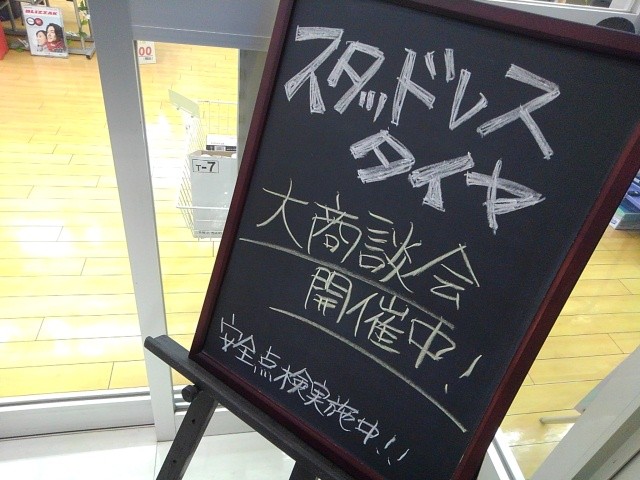 スタッドレス
タイヤ
大商談会
開催中!
安全点検実施中!!
BLIZZAK
00
T-7